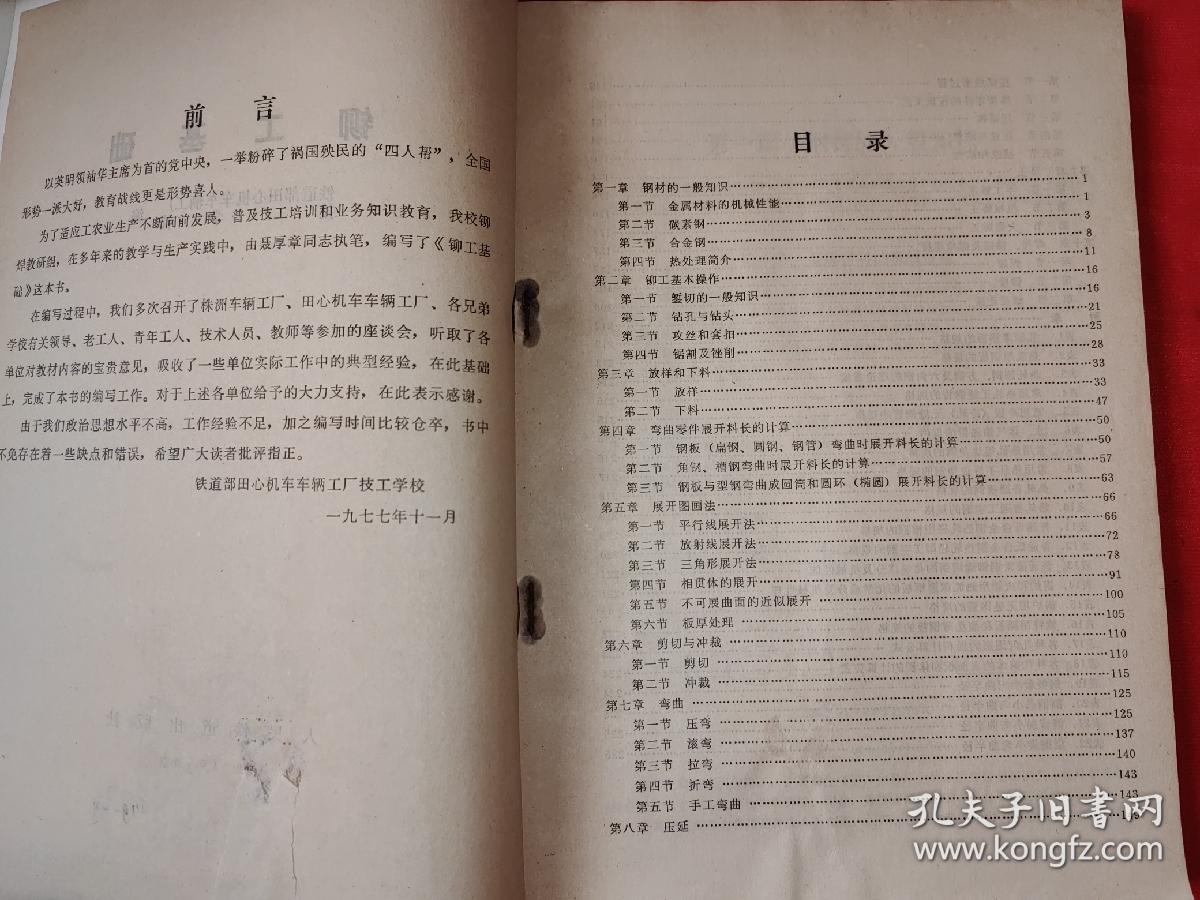 前言
以英明领袖华主席为首的党中央，一举粉碎了祸国殃民的“四人帮”，全国
形势一派大好，教育战线更是形势喜人。
为了适应工农业生产不断向前发展，普及技工培训和业务知识教育，我校铆
焊教研组，在多年来的教学与生产实践中，由聂厚章同志执笔，编写了《铆工基
础》这本书。
在编写过程中，我们多次召开了株洲车辆工厂、田心机车车辆工厂、各兄弟
学校有关领导、老工人、青年工人、技术人员、教师等参加的座谈会，听取了各
单位对教材内容的宝贵意见，吸收了一些单位实际工作中的典型经验，在此基础
上，完成了本书的编写工作。对于上述各单位给予的大力支持，在此表示感谢。
由于我们政治思想水平不高，工作经验不足，加之编写时间比较仓卒，书中
不免存在着一些缺点和错误，希望广大读者批评指正。
铁道部田心机车车辆工厂技工学校
一九七七年十一月
目录
第一章 钢材的一般知识……1
第一节 金属材料的机械性能……1
第二节 碳素钢……3
第三节 合金钢……8
第四节 热处理简介……11
第二章 铆工基本操作……16
第一节 錾切的一般知识……16
第二节 钻孔与钻头……21
第三节 攻丝和套扣……25
第四节 锯割及锉削……28
第三章 放样和下料……33
第一节 放样……33
第二节 下料……47
第四章 弯曲零件展开料长的计算……50
第一节 钢板（扁钢、圆钢、钢管）弯曲时展开料长的计算……50
第二节 角钢、槽钢弯曲时展开料长的计算……57
第三节 钢板与型钢弯曲成圆筒和圆环（椭圆）展开料长的计算……63
第五章 展开图画法……66
第一节 平行线展开法……66
第二节 放射线展开法……72
第三节 三角形展开法……78
第四节 相贯体的展开……91
第五节 不可展曲面的近似展开……100
第六节 板厚处理……105
第六章 剪切与冲裁……110
第一节 剪切……110
第二节 冲裁……115
第七章 弯曲……125
第一节 压弯……125
第二节 滚弯……137
第三节 拉弯……140
第四节 折弯……143
第五节 手工弯曲……143
第八章 压延……
孔夫子旧书网
www.kongfz.com